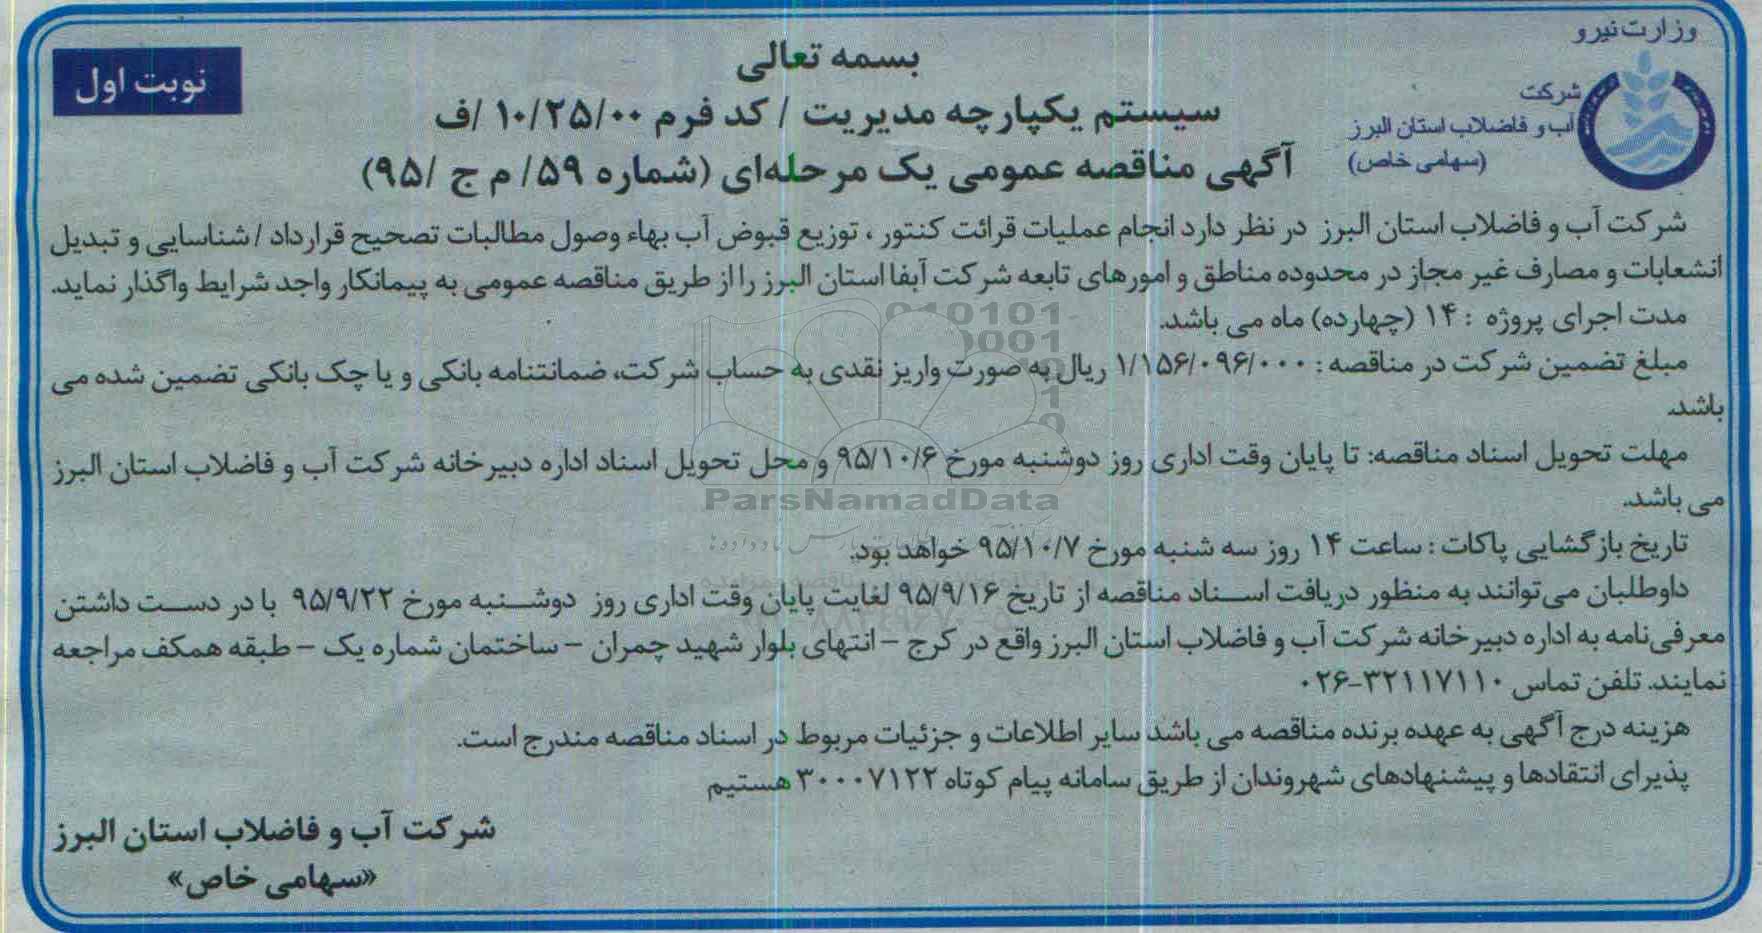 وزارت نیرو
شرکت
آب و فاضلاب استان البرز
(سهامی خاص)
نوبت اول
بسمه تعالی
سیستم یکپارچه مدیریت / کد فرم ۱۰/۲۵/۰۰ /ف
آگهی مناقصه عمومی یک مرحله‌ای (شماره ۵۹/ م ج /۹۵)
شرکت آب و فاضلاب استان البرز در نظر دارد انجام عملیات قرائت کنتور ، توزیع قبوض آب بهاء وصول مطالبات تصحیح قرارداد / شناسایی و تبدیل
انشعابات و مصارف غیر مجاز در محدوده مناطق و امورهای تابعه شرکت آبفا استان البرز را از طریق مناقصه عمومی به پیمانکار واجد شرایط واگذار نماید.
مدت اجرای پروژه : ۱۴ (چهارده) ماه می باشد.
مبلغ تضمین شرکت در مناقصه : ۱/۱۵۶/۰۹۶/۰۰۰ ریال به صورت واریز نقدی به حساب شرکت، ضمانتنامه بانکی و یا چک بانکی تضمین شده می
باشد.
مهلت تحویل اسناد مناقصه: تا پایان وقت اداری روز دوشنبه مورخ ۹۵/۱۰/۶ و محل تحویل اسناد اداره دبیرخانه شرکت آب و فاضلاب استان البرز
می باشد.
تاریخ بازگشایی پاکات : ساعت ۱۴ روز سه شنبه مورخ ۹۵/۱۰/۷ خواهد بود.
داوطلبان می‌توانند به منظور دریافت اسناد مناقصه از تاریخ ۹۵/۹/۱۶ لغایت پایان وقت اداری روز دوشنبه مورخ ۹۵/۹/۲۲ با در دست داشتن
معرفی‌نامه به اداره دبیرخانه شرکت آب و فاضلاب استان البرز واقع در کرج – انتهای بلوار شهید چمران – ساختمان شماره یک – طبقه همکف مراجعه
نمایند. تلفن تماس ۳۲۱۱۷۱۱۰-۰۲۶
هزینه درج آگهی به عهده برنده مناقصه می باشد سایر اطلاعات و جزئیات مربوط در اسناد مناقصه مندرج است.
پذیرای انتقادها و پیشنهادهای شهروندان از طریق سامانه پیام کوتاه ۳۰۰۰۷۱۲۲ هستیم
شرکت آب و فاضلاب استان البرز
«سهامی خاص»
ParsNamadData